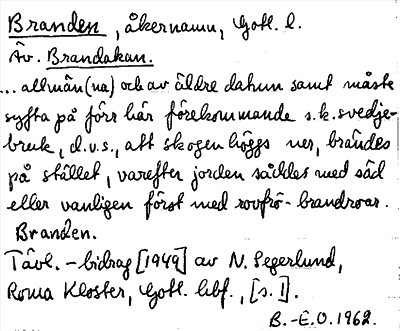 Branden, åkernamn, Gotl. l.
Äv. Brandakan.
... allmän(na) och av äldre datum samt måste
syfta på förr här förekommande s.k. svedje-
bruk, d.v.s., att skogen höggs ner, brändes
på stället, varefter jorden såddes med säd
eller vanligen först med rovfrö - brandrovor.
Branden.
Tävl. - bidrag [1949] av N. Segerlund,
Roma Kloster, Gotl. hbf., [s. 1].
B.-E.O. 1962.